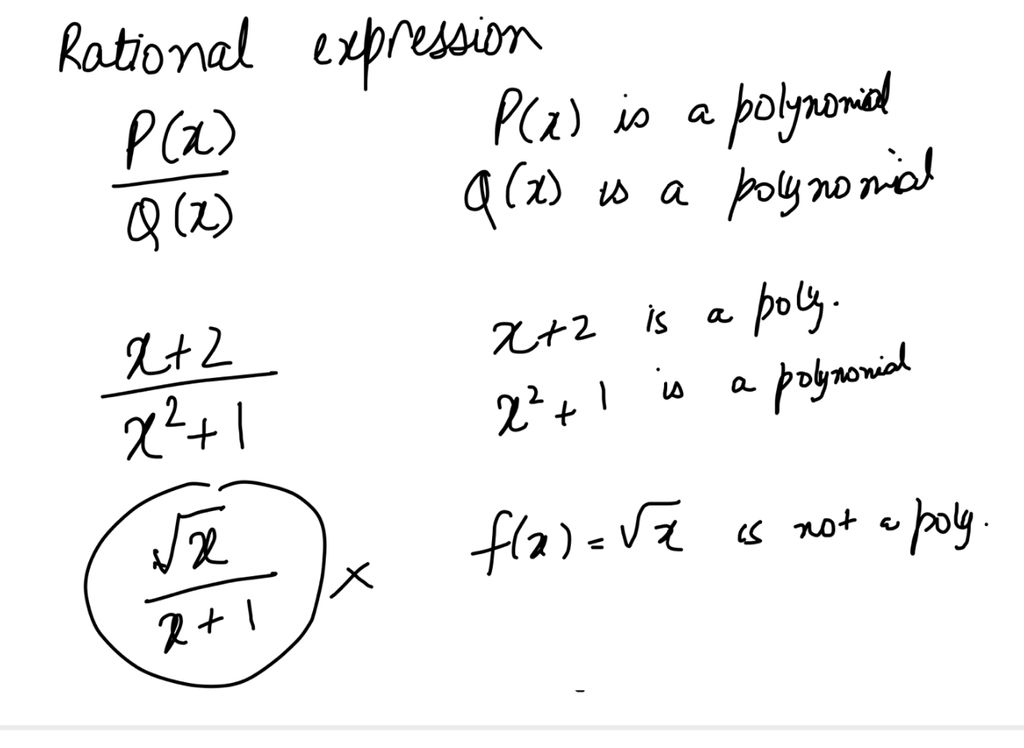 Rational expression
P(x) P(x) is a polynomial
Q(x) Q(x) is a polynomial
x+2 x+2 is a poly.
x²+1 x²+1 is a polynomial
√x f(x) = √x is not a poly.
x+1 ×